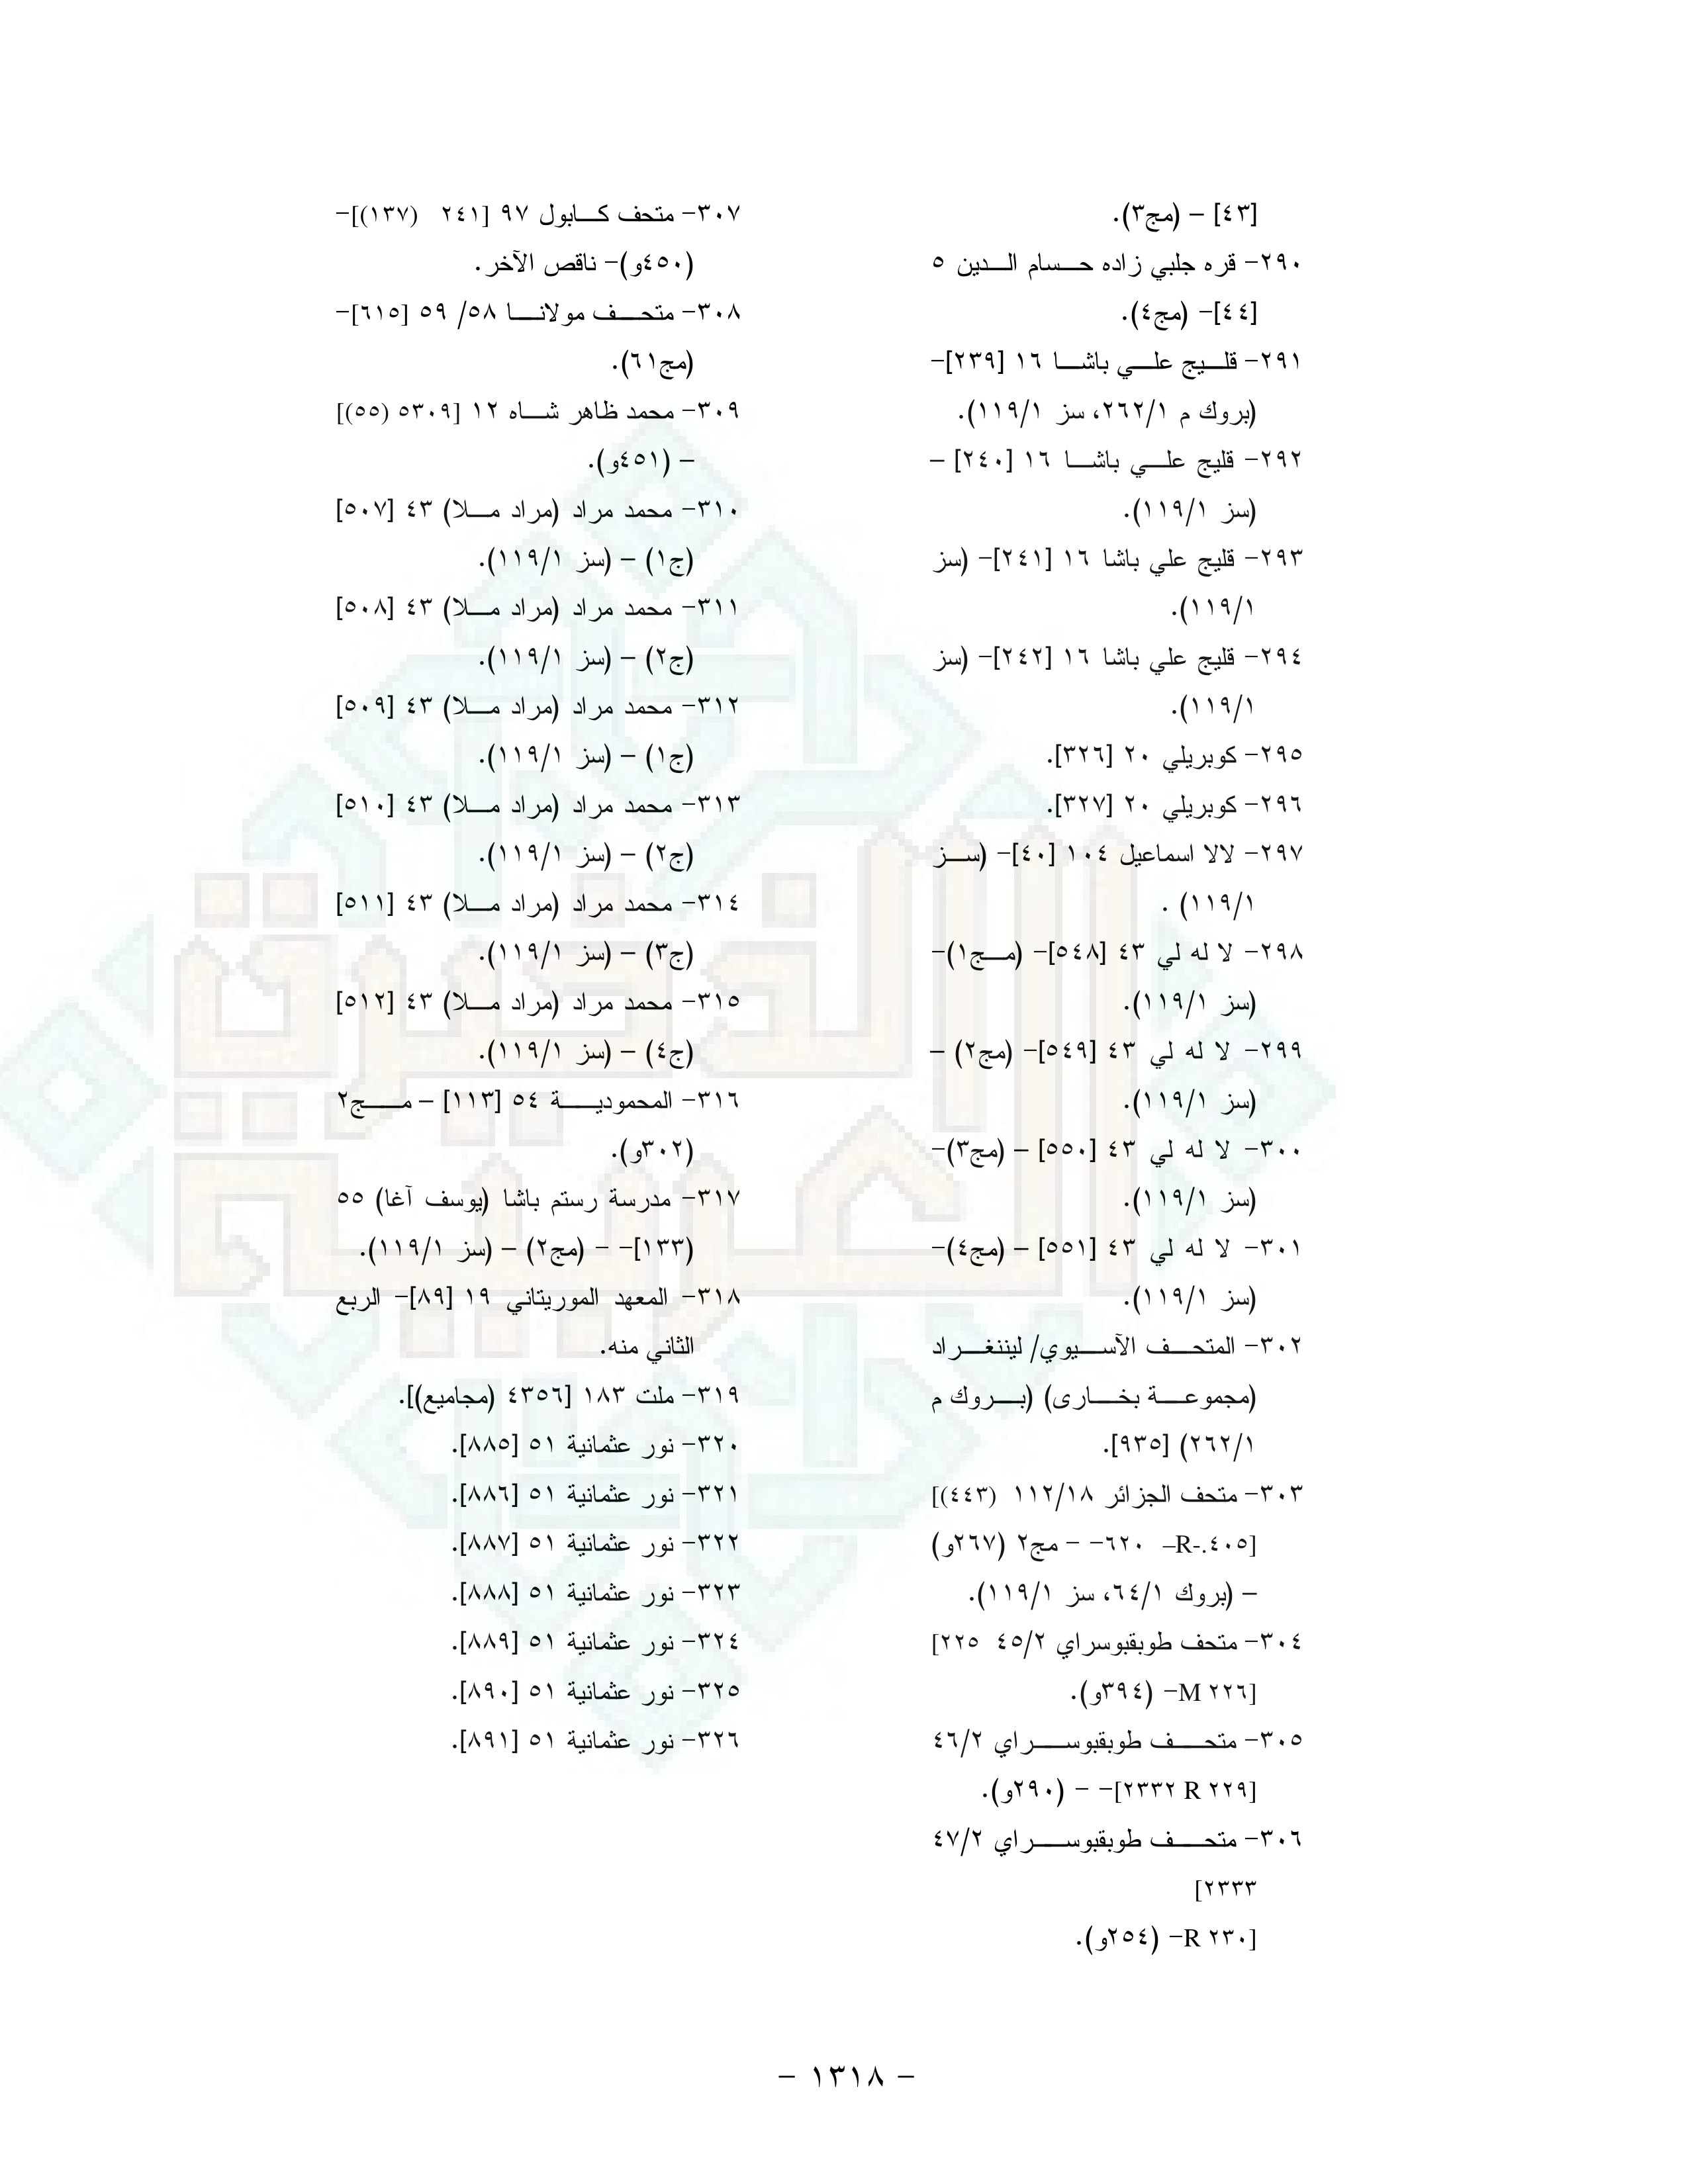 [٤٣] – (مج٣).
٢٩٠– قره جلبي زاده حسام الدين ٥
[٤٤]– (مج٤).
٢٩١– قليج علي باشا ١٦ [٢٣٩]–
(بروك م ٢٦٢/١، سز ١١٩/١).
٢٩٢– قليج علي باشا ١٦ [٢٤٠] –
(سز ١١٩/١).
٢٩٣– قليج علي باشا ١٦ [٢٤١]– (سز
١١٩/١).
٢٩٤– قليج علي باشا ١٦ [٢٤٢]– (سز
١١٩/١).
٢٩٥– كوبريلي ٢٠ [٣٢٦].
٢٩٦– كوبريلي ٢٠ [٣٢٧].
٢٩٧– لالا اسماعيل ١٠٤ [٤٠]– (سز
١١٩/١) .
٢٩٨– لا له لي ٤٣ [٥٤٨]– (مج١)–
(سز ١١٩/١).
٢٩٩– لا له لي ٤٣ [٥٤٩]– (مج٢) –
(سز ١١٩/١).
٣٠٠– لا له لي ٤٣ [٥٥٠] – (مج٣)–
(سز ١١٩/١).
٣٠١– لا له لي ٤٣ [٥٥١] – (مج٤)–
(سز ١١٩/١).
٣٠٢– المتحف الآسيوي/ ليننغراد
(مجموعة بخارى) (بروك م
٢٦٢/١) [٩٣٥].
٣٠٣– متحف الجزائر ١١٢/١٨ (٤٤٣)]
[٤٠٥.-R– ٦٢٠– – مج٢ (٢٦٧و)
– (بروك ٦٤/١، سز ١١٩/١).
٣٠٤– متحف طوبقبوسراي ٤٥/٢ ٢٢٥]
[٢٢٦ M– (٣٩٤و).
٣٠٥– متحف طوبقبوسراي ٤٦/٢
[٢٢٩ R ٢٣٣٢]– – (٢٩٠و).
٣٠٦– متحف طوبقبوسراي ٤٧/٢
٢٣٣٣]
[٢٣٠ R– (٢٥٤و).
٣٠٧– متحف كابول ٩٧ [٢٤١ (١٣٧)]–
(٤٥٠و)– ناقص الآخر.
٣٠٨– متحف مولانا ٥٨/ ٥٩ [٦١٥]–
(مج٦١).
٣٠٩– محمد ظاهر شاه ١٢ [٥٣٠٩ (٥٥)]
– (٤٥١و).
٣١٠– محمد مراد (مراد ملا) ٤٣ [٥٠٧]
(ج١) – (سز ١١٩/١).
٣١١– محمد مراد (مراد ملا) ٤٣ [٥٠٨]
(ج٢) – (سز ١١٩/١).
٣١٢– محمد مراد (مراد ملا) ٤٣ [٥٠٩]
(ج١) – (سز ١١٩/١).
٣١٣– محمد مراد (مراد ملا) ٤٣ [٥١٠]
(ج٢) – (سز ١١٩/١).
٣١٤– محمد مراد (مراد ملا) ٤٣ [٥١١]
(ج٣) – (سز ١١٩/١).
٣١٥– محمد مراد (مراد ملا) ٤٣ [٥١٢]
(ج٤) – (سز ١١٩/١).
٣١٦– المحمودية ٥٤ [١١٣] – مج٢
(٣٠٢و).
٣١٧– مدرسة رستم باشا (يوسف آغا) ٥٥
(١٣٣]– – (مج٢) – (سز ١١٩/١).
٣١٨– المعهد الموريتاني ١٩ [٨٩]– الربع
الثاني منه.
٣١٩– ملت ١٨٣ [٤٣٥٦ (مجاميع)].
٣٢٠– نور عثمانية ٥١ [٨٨٥].
٣٢١– نور عثمانية ٥١ [٨٨٦].
٣٢٢– نور عثمانية ٥١ [٨٨٧].
٣٢٣– نور عثمانية ٥١ [٨٨٨].
٣٢٤– نور عثمانية ٥١ [٨٨٩].
٣٢٥– نور عثمانية ٥١ [٨٩٠].
٣٢٦– نور عثمانية ٥١ [٨٩١].
– ١٣١٨ –